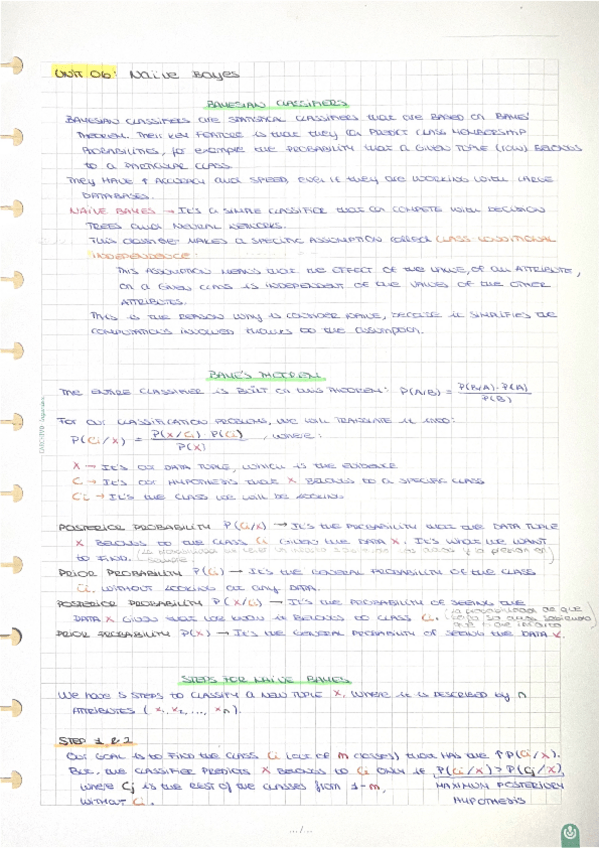 UNIT 06: Naïve Bayes
BAYESIAN CLASSIFIERS
BAYESIAN CLASSIFIERS are STATISTICAL CLASSIFIERS that are BASED on BAYES'
THEOREM. Their KEY FEATURE is that they can PREDICT CLASS MEMBERSHIP
PROBABILITIES, for example the PROBABILITY that a GIVEN TUPLE (row) BELONGS
to a PARTICULAR CLASS.
They HAVE ↑ ACCURACY and SPEED, even if they are WORKING WITH LARGE
DATABASES.
NAÏVE BAYES → It's a SIMPLE CLASSIFIER that can COMPETE WITH DECISION
TREES and NEURAL NETWORKS.
This classifier MAKES A SPECIFIC ASSUMPTION called CLASS-CONDITIONAL
INDEPENDENCE:
This ASSUMPTION MEANS that the EFFECT OF the VALUE, OF an ATTRIBUTE,
on a GIVEN CLASS is INDEPENDENT OF the VALUES OF the OTHER
ATTRIBUTES.
This is the REASON WHY is CONSIDER NAIVE, BECAUSE it SIMPLIFIES the
COMPUTATIONS INVOLVED thanks to the assumption.
BAYE'S THEOREM
The ENTIRE CLASSIFIER IS BUILT on this THEOREM: P(A/B) = P(B/A)·P(A) / P(B)
For our CLASSIFICATION PROBLEMS, we will TRANSLATE it into:
P(Ci/X) = P(X/Ci) P(Ci) / P(X) , where:
X → It's our DATA TUPLE, WHICH is the EVIDENCE
C → It's our HYPOTHESIS that X BELONGS to a SPECIFIC CLASS
Ci → It's the CLASS we will be looking
POSTERIOR PROBABILITY P(Ci/X) → It's the PROBABILITY that our DATA TUPLE
X BELONGS to the CLASS Ci GIVEN the DATA X. It's what we WANT
to FIND.
PRIOR PROBABILITY P(Ci) → It's the GENERAL PROBABILITY OF the CLASS
Ci, WITHOUT LOOKING at any DATA.
POSTERIOR PROBABILITY P(X/Ci) → It's the PROBABILITY OF SEEING the
DATA X GIVEN that we know it BELONGS to CLASS Ci. (la probabilidad de que
PRIOR PROBABILITY P(X) → It's the GENERAL PROBABILITY OF SEEING the DATA X.
STEPS FOR NAÏVE BAYES
We have 5 STEPS to CLASSIFY A NEW TUPLE X, WHERE it is DESCRIBED by n
ATTRIBUTES (x1, x2, ..., xn).
STEP 1 & 2
Our GOAL is to FIND the CLASS Ci (out of m classes) that HAS the ↑P(Ci/X).
But, the CLASSIFIER PREDICTS X BELONGS to Ci ONLY if P(Ci/X) > P(Cj/X),
where Cj is the REST of the CLASSES from 1-m, MAXIMUM POSTERIORI
WITHOUT Ci. HYPOTHESIS
.../...